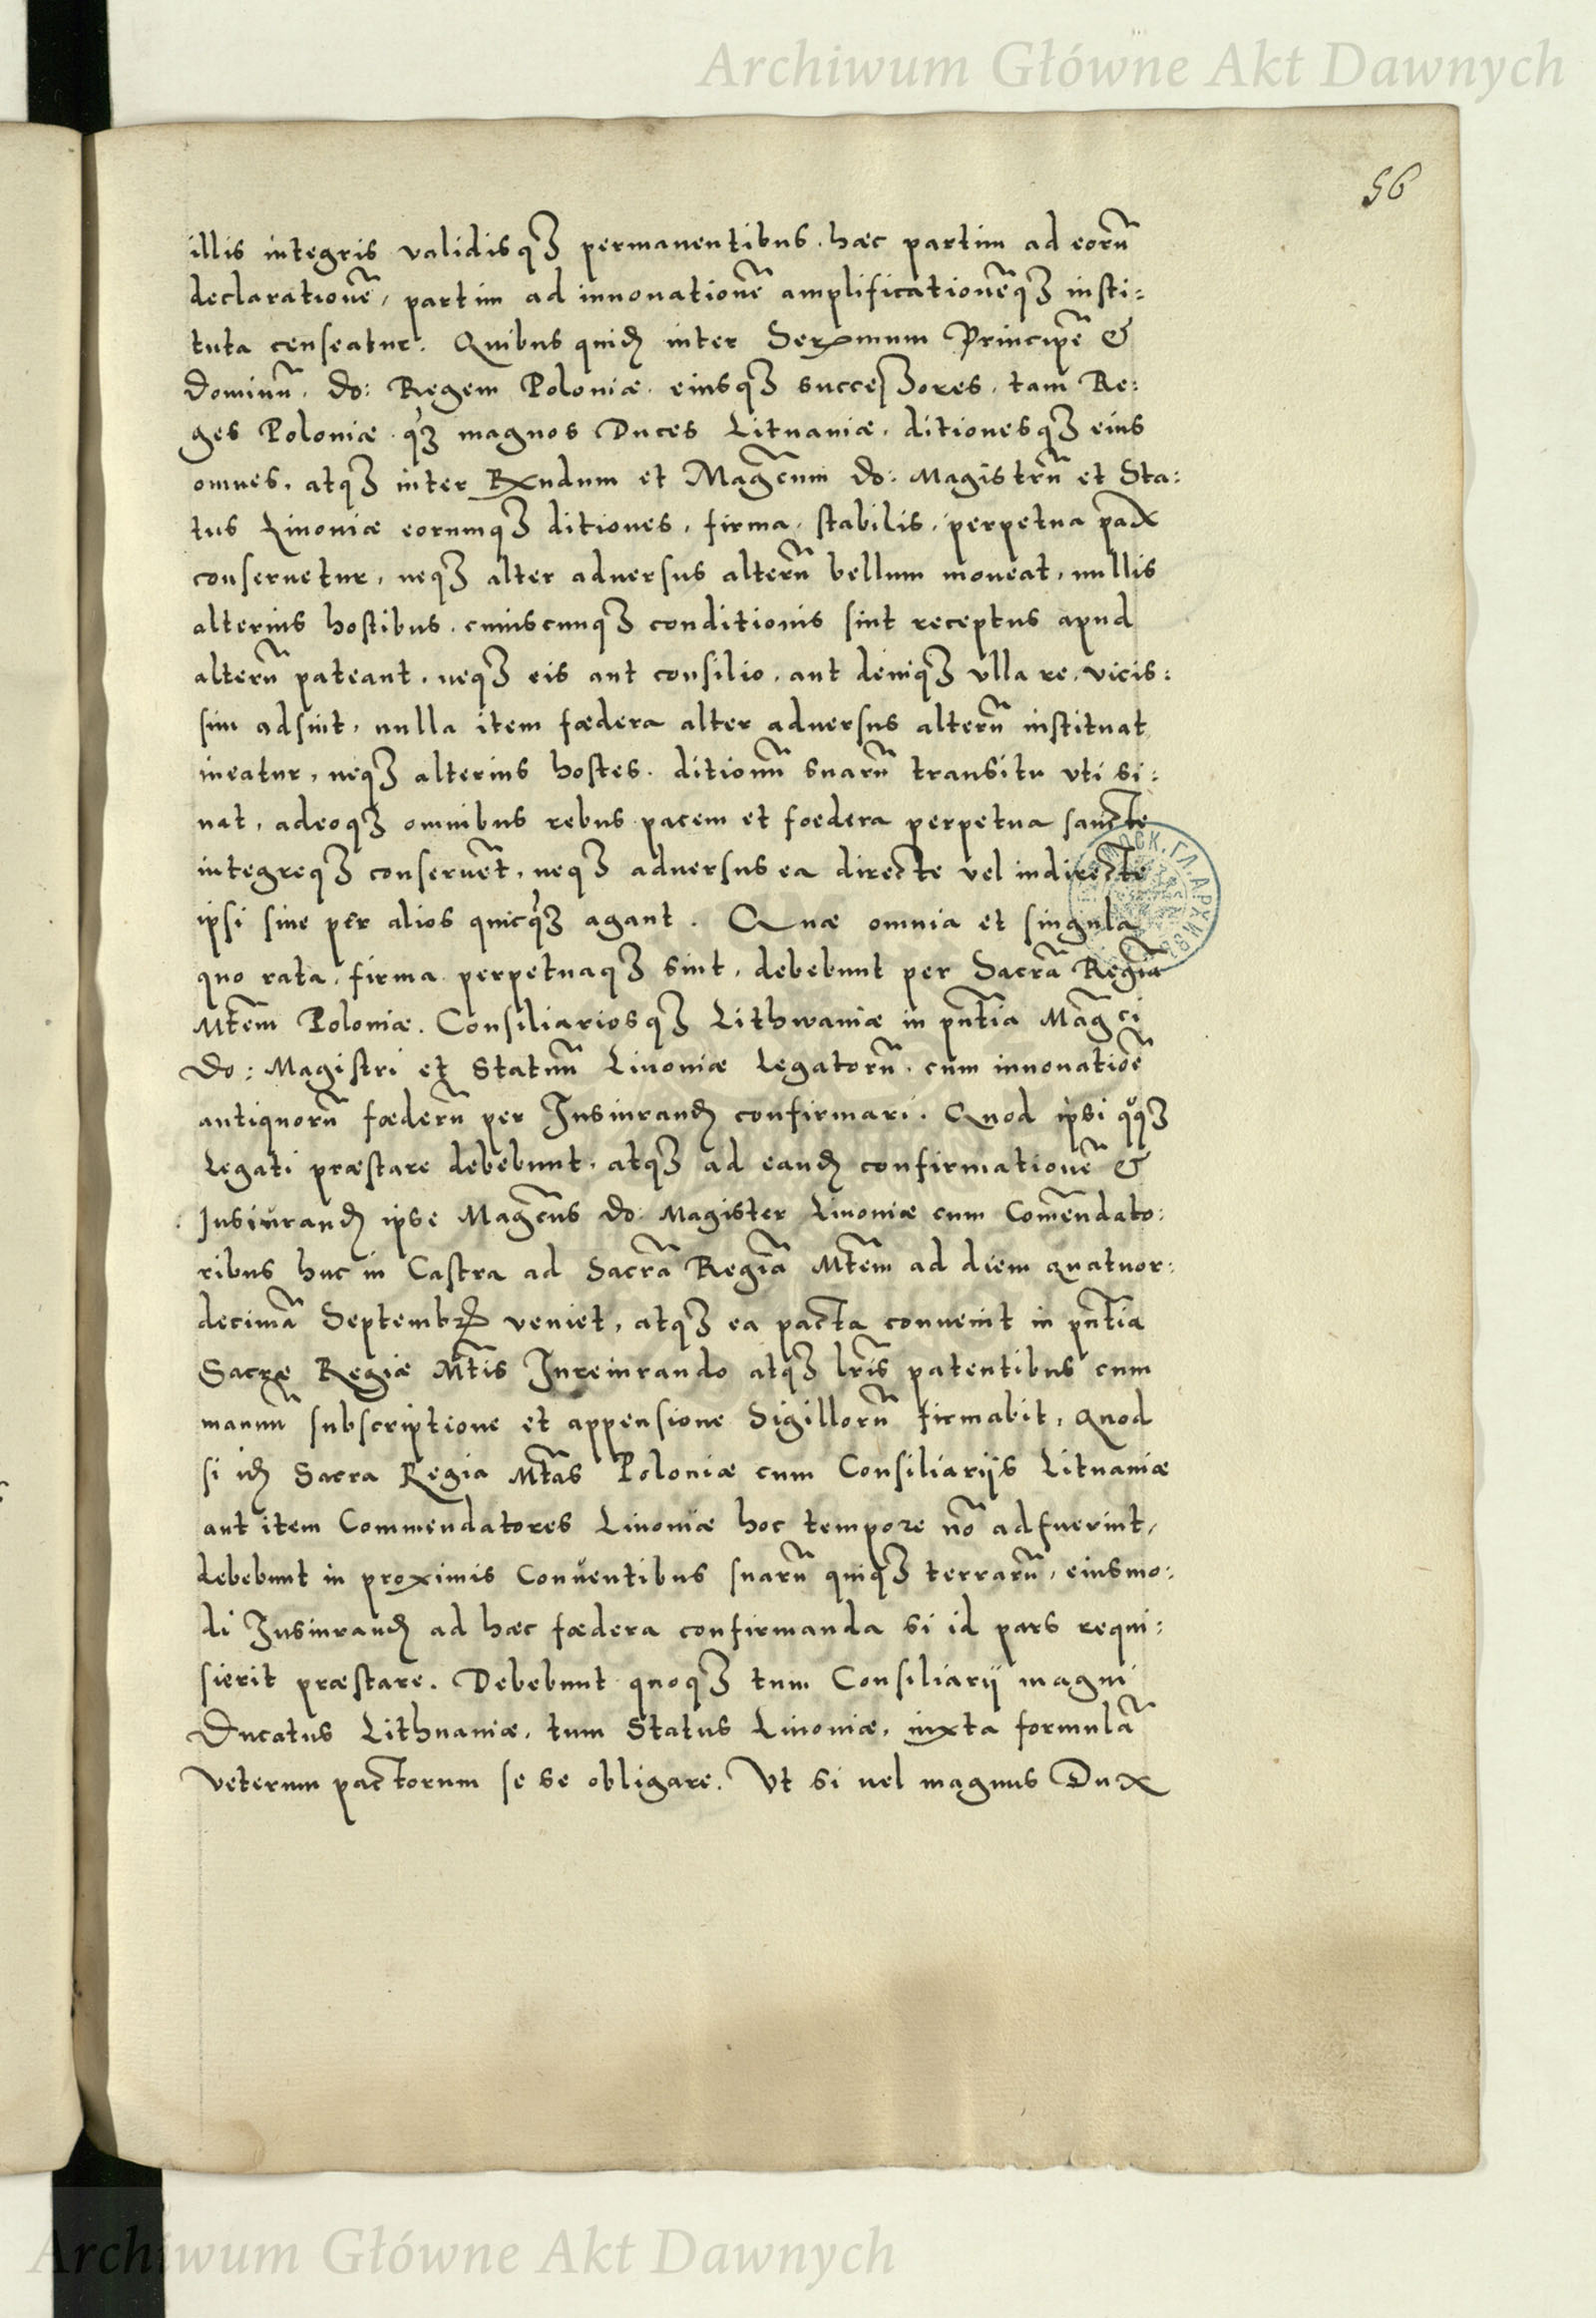 Archiwum Główne Akt Dawnych
56
illis integris validisqȝ permanentibus. hæc partim ad eorū
declarationē, partim ad innouationē amplificationēqȝ insti=
tuta censeatur. Quibus quidẽ inter Serxmum Principē &
Dominū. do: Regem Poloniæ. eiusqȝ successores. tam Re:
ges Poloniæ. qȝ magnos Duces Lituaniæ. ditionesqȝ eius
omnes. atqȝ inter Rxndum et Magc̃um do: Magistrū et Sta:
tus Liuoniæ eorumqȝ ditiones, firma, stabilis, perpetua pax
conseruetur, neqȝ alter aduersus alterū bellum moueat, nullis
alterius hostibus. cuiuscunqȝ conditionis sint receptus apud
alterū pateant. neqȝ eis aut consilio. aut deniqȝ vlla re. vicis:
sim adsint. nulla item fœdera alter aduersus alterū instituat
ineatur, neqȝ alterius hostes. ditionū suarū transitu vti si:
nat. adeoqȝ omnibus rebus pacem et foedera perpetua sancte
integreqȝ conseruēt, neqȝ aduersus ea directe vel indirecte
ipsi siue per alios quicqȝ agant. Quæ omnia et singula
quo rata, firma perpetuaqȝ sint, debebunt per Sacrā Regiā
Mtēm Poloniæ. Consiliariosqȝ Lithwaniæ in pn̄tia Magc̃i
Do: Magistri et Statuū Liuoniæ Legatorū. cum innouatiōe
antiquorū fœderū per Iusiurandẽ confirmari. Quod ipsi qͦqȝ
Legati præstare debebunt. atqȝ ad eandẽ confirmationē &
Iusiurandẽ ipse Magc̃us do: Magister Liuoniæ cum Com̄endato:
ribus huc in Castra ad Sacrā Regiā Mtēm ad diem quatuor:
decimā Septembꝝ veniet, atqȝ ea pacta conuenit in pn̄tia
Sacræ Regiæ Mt̄is Iureiurando atqȝ lr̄is patentibus cum
manuū subscriptione et appensione Sigillorū firmabit, Quod
si idẽ Sacra Regia Mt̄as Poloniæ cum Consiliarijs Lituaniæ
aut item Commendatores Liuoniæ hoc tempore nō adfuerint,
debebunt in proximis Conuentibus suarū quiqȝ terrarū, eiusmo:
di Iusiurandẽ ad hæc fœdera confirmanda si id pars requi:
sierit præstare. Debebunt quoqȝ tum Consiliarij magni
Ducatus Lithuaniæ. tum Status Liuoniæ, iuxta formulā
Veterum pactorum se se obligare. Vt si uel magnus Dux
Archiwum Główne Akt Dawnych